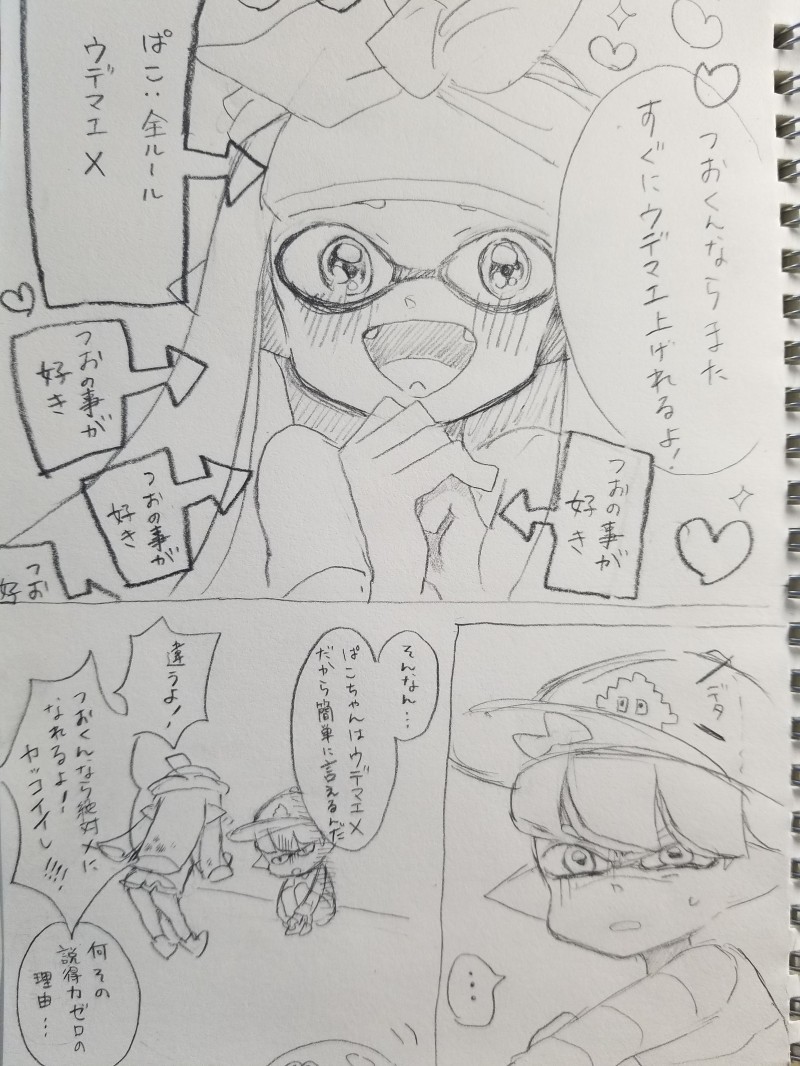 つおくんならまた
すぐにウデマエ上げれるよ!
ぱこ:全ルール
ウデマエX
つおの事が
好き
つおの事が
好き
つおの事が
好き
つお
好
デタ
…
そんなん…
ぱこちゃんはウデマエX
だから簡単に言えるんだ
違うよ!
つおくんなら絶対Xに
なれるよ!
カッコイイし!!!!
何その
説得力ゼロの
理由…